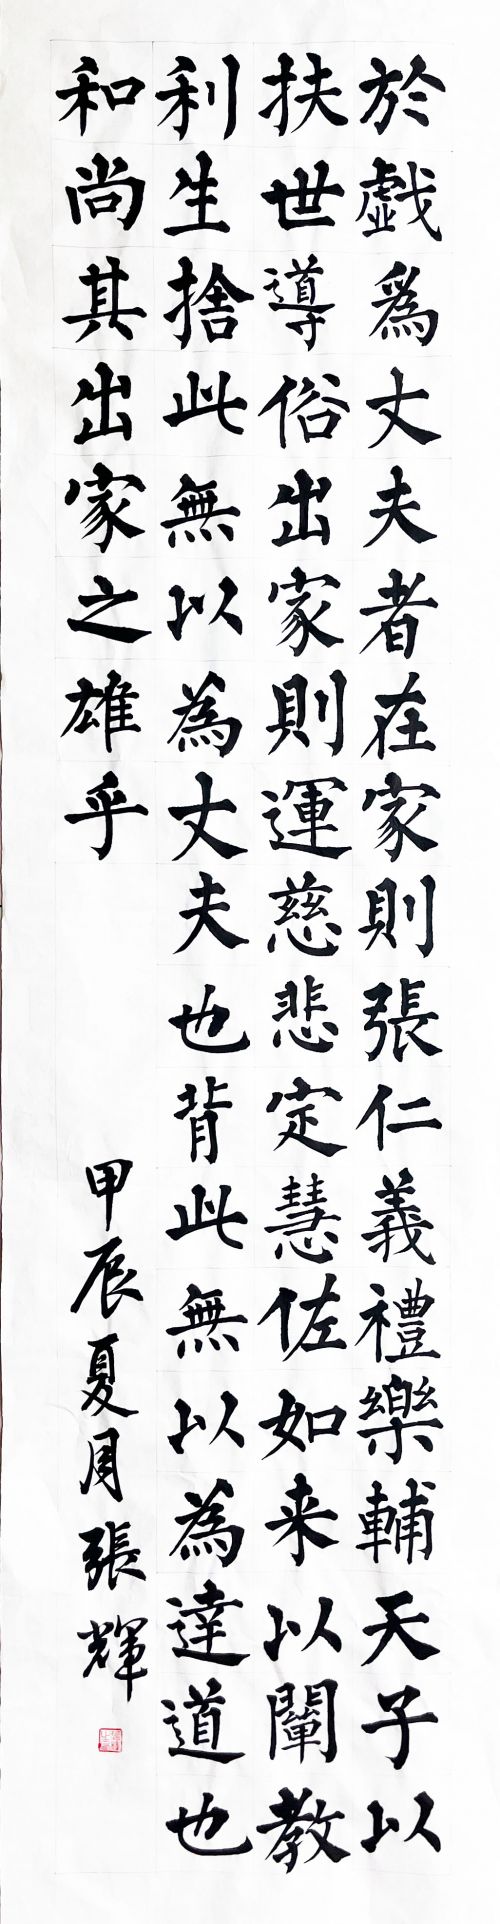 於戲爲丈夫者在家則張仁義禮樂輔天子以
扶世導俗出家則運慈悲定慧佐如来以闡教
利生捨此無以為丈夫也背此無以為達道也
和尚其出家之雄乎
甲辰夏月張輝